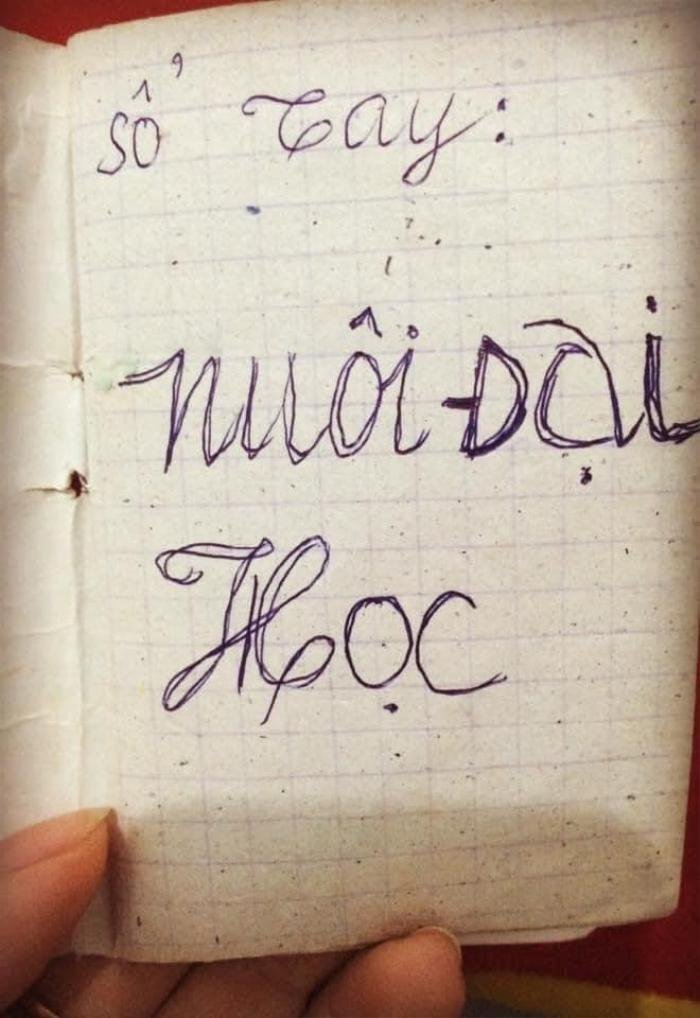 Sổ Tay:
NUÔi ĐẠi
Học